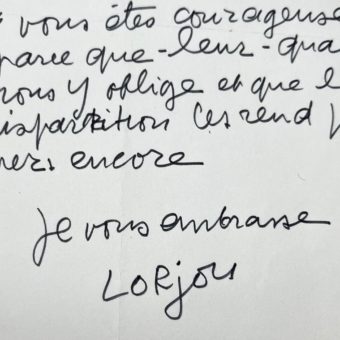 vous êtes courageuse
parce que-leur-qua
vous y oblige et que l
disparition les rend p
chers encore
je vous embrasse
LORjou